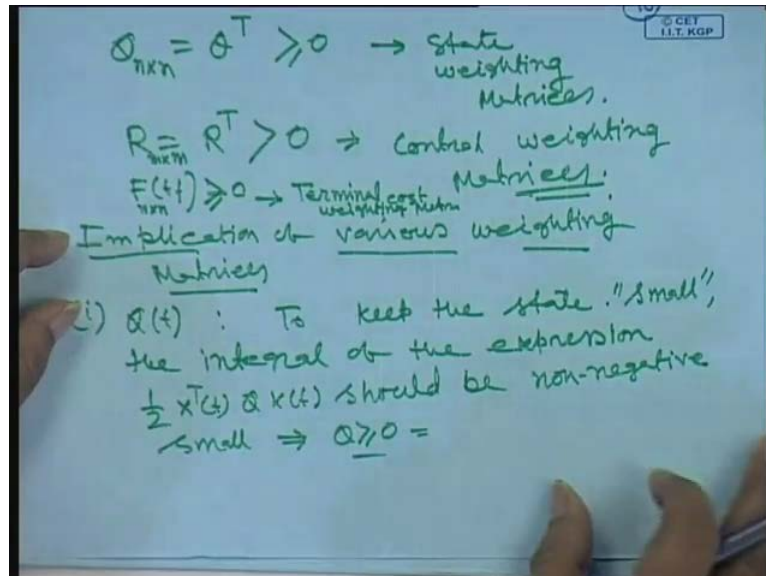 © CET
I.I.T. KGP
Q_{n×n} = Q^T ≥ 0 → State
weighting
Matrices.
R_{m×m} = R^T > 0 → Control weighting
Matrices.
F(tf)_{n×n} ≥ 0 → Terminal cost
weighting Matrix
Implication of various weighting
Matrices
(i) Q(t) : To keep the state "small",
the integral of the expression
1/2 x^T(t) Q x(t) should be non-negative
small ⇒ Q ≥ 0 =